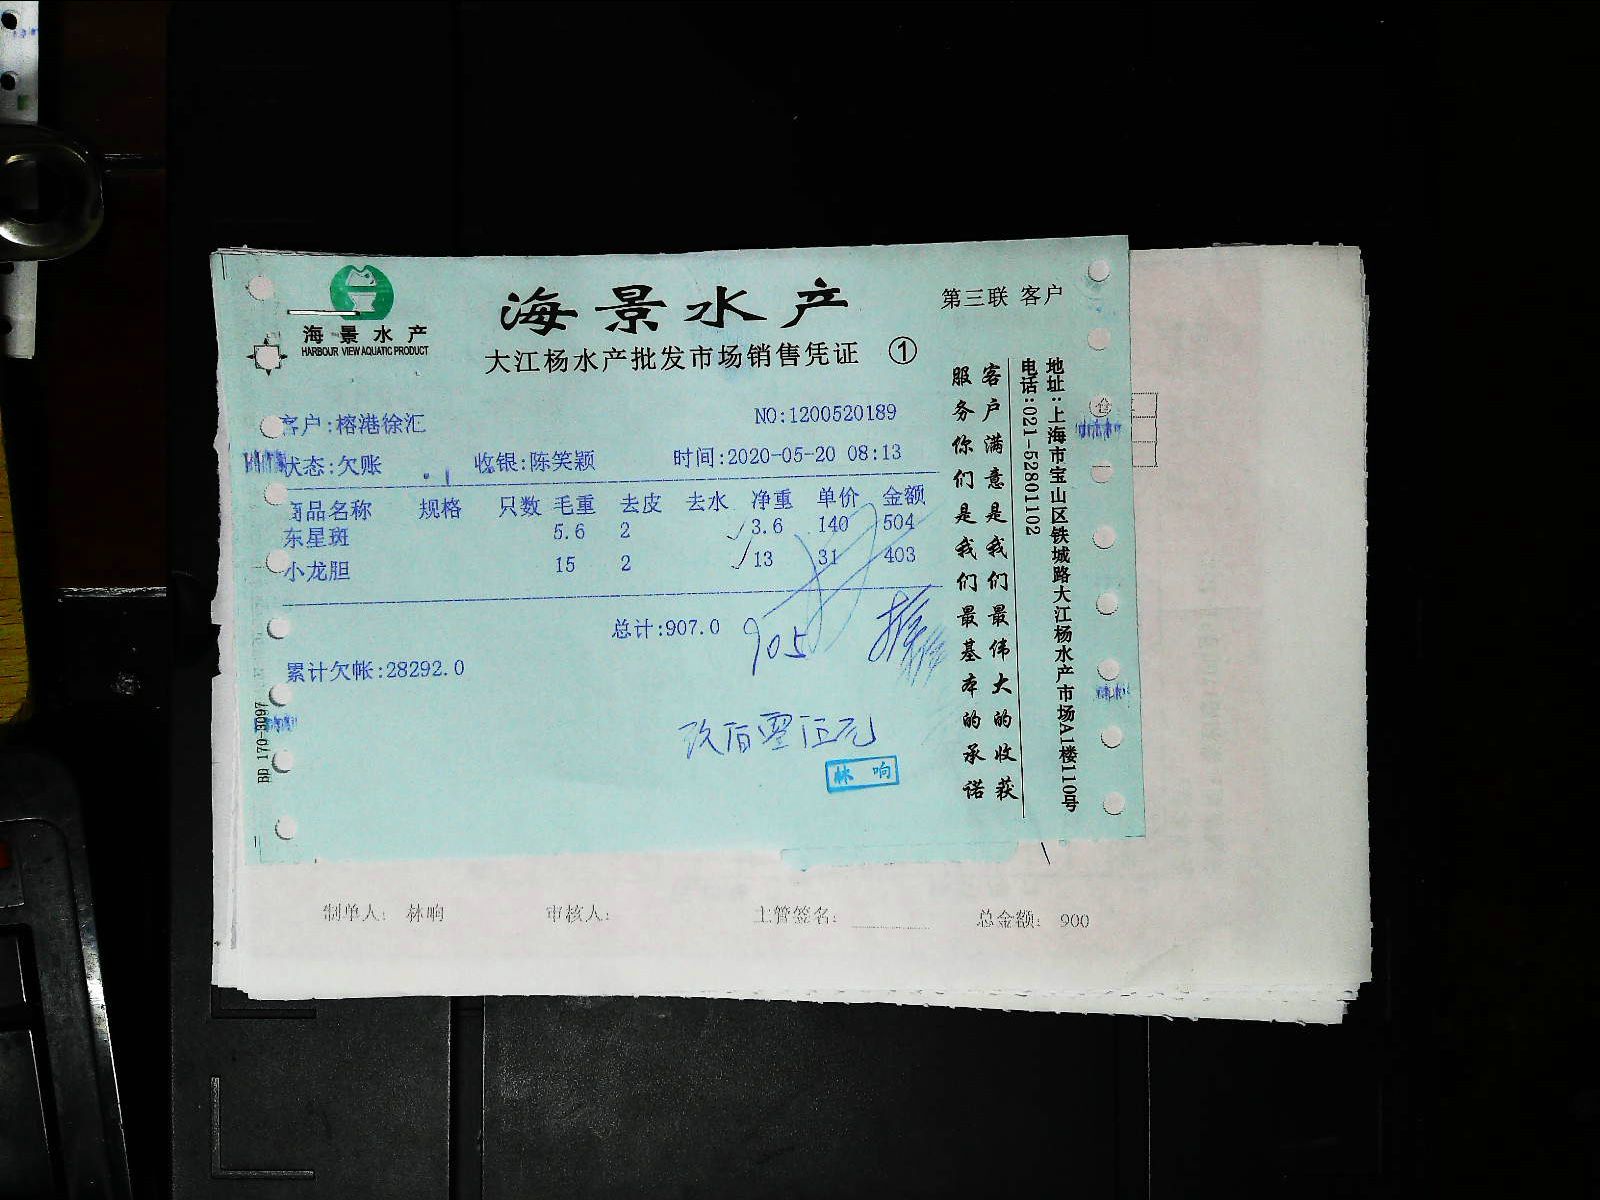 海景水产
HARBOUR VIEW AQUATIC PRODUCT
海景水产
大江杨水产批发市场销售凭证 ①
第三联 客户
客户:榕港徐汇
NO:1200520189
状态:欠账 收银:陈笑颖 时间:2020-05-20 08:13
商品名称 规格 只数 毛重 去皮 去水 净重 单价 金额
东星斑 5.6 2 3.6 140 504
小龙胆 15 2 13 31 403
总计:907.0
905
累计欠帐:28292.0
玖佰零伍元
林响
客户满意是我们最伟大的收获
服务你们是我们最基本的承诺
地址:上海市宝山区铁城路大江杨水产市场A1楼110号
电话:021-52801102
制单人: 林响 审核人: 主管签名: 总金额: 900